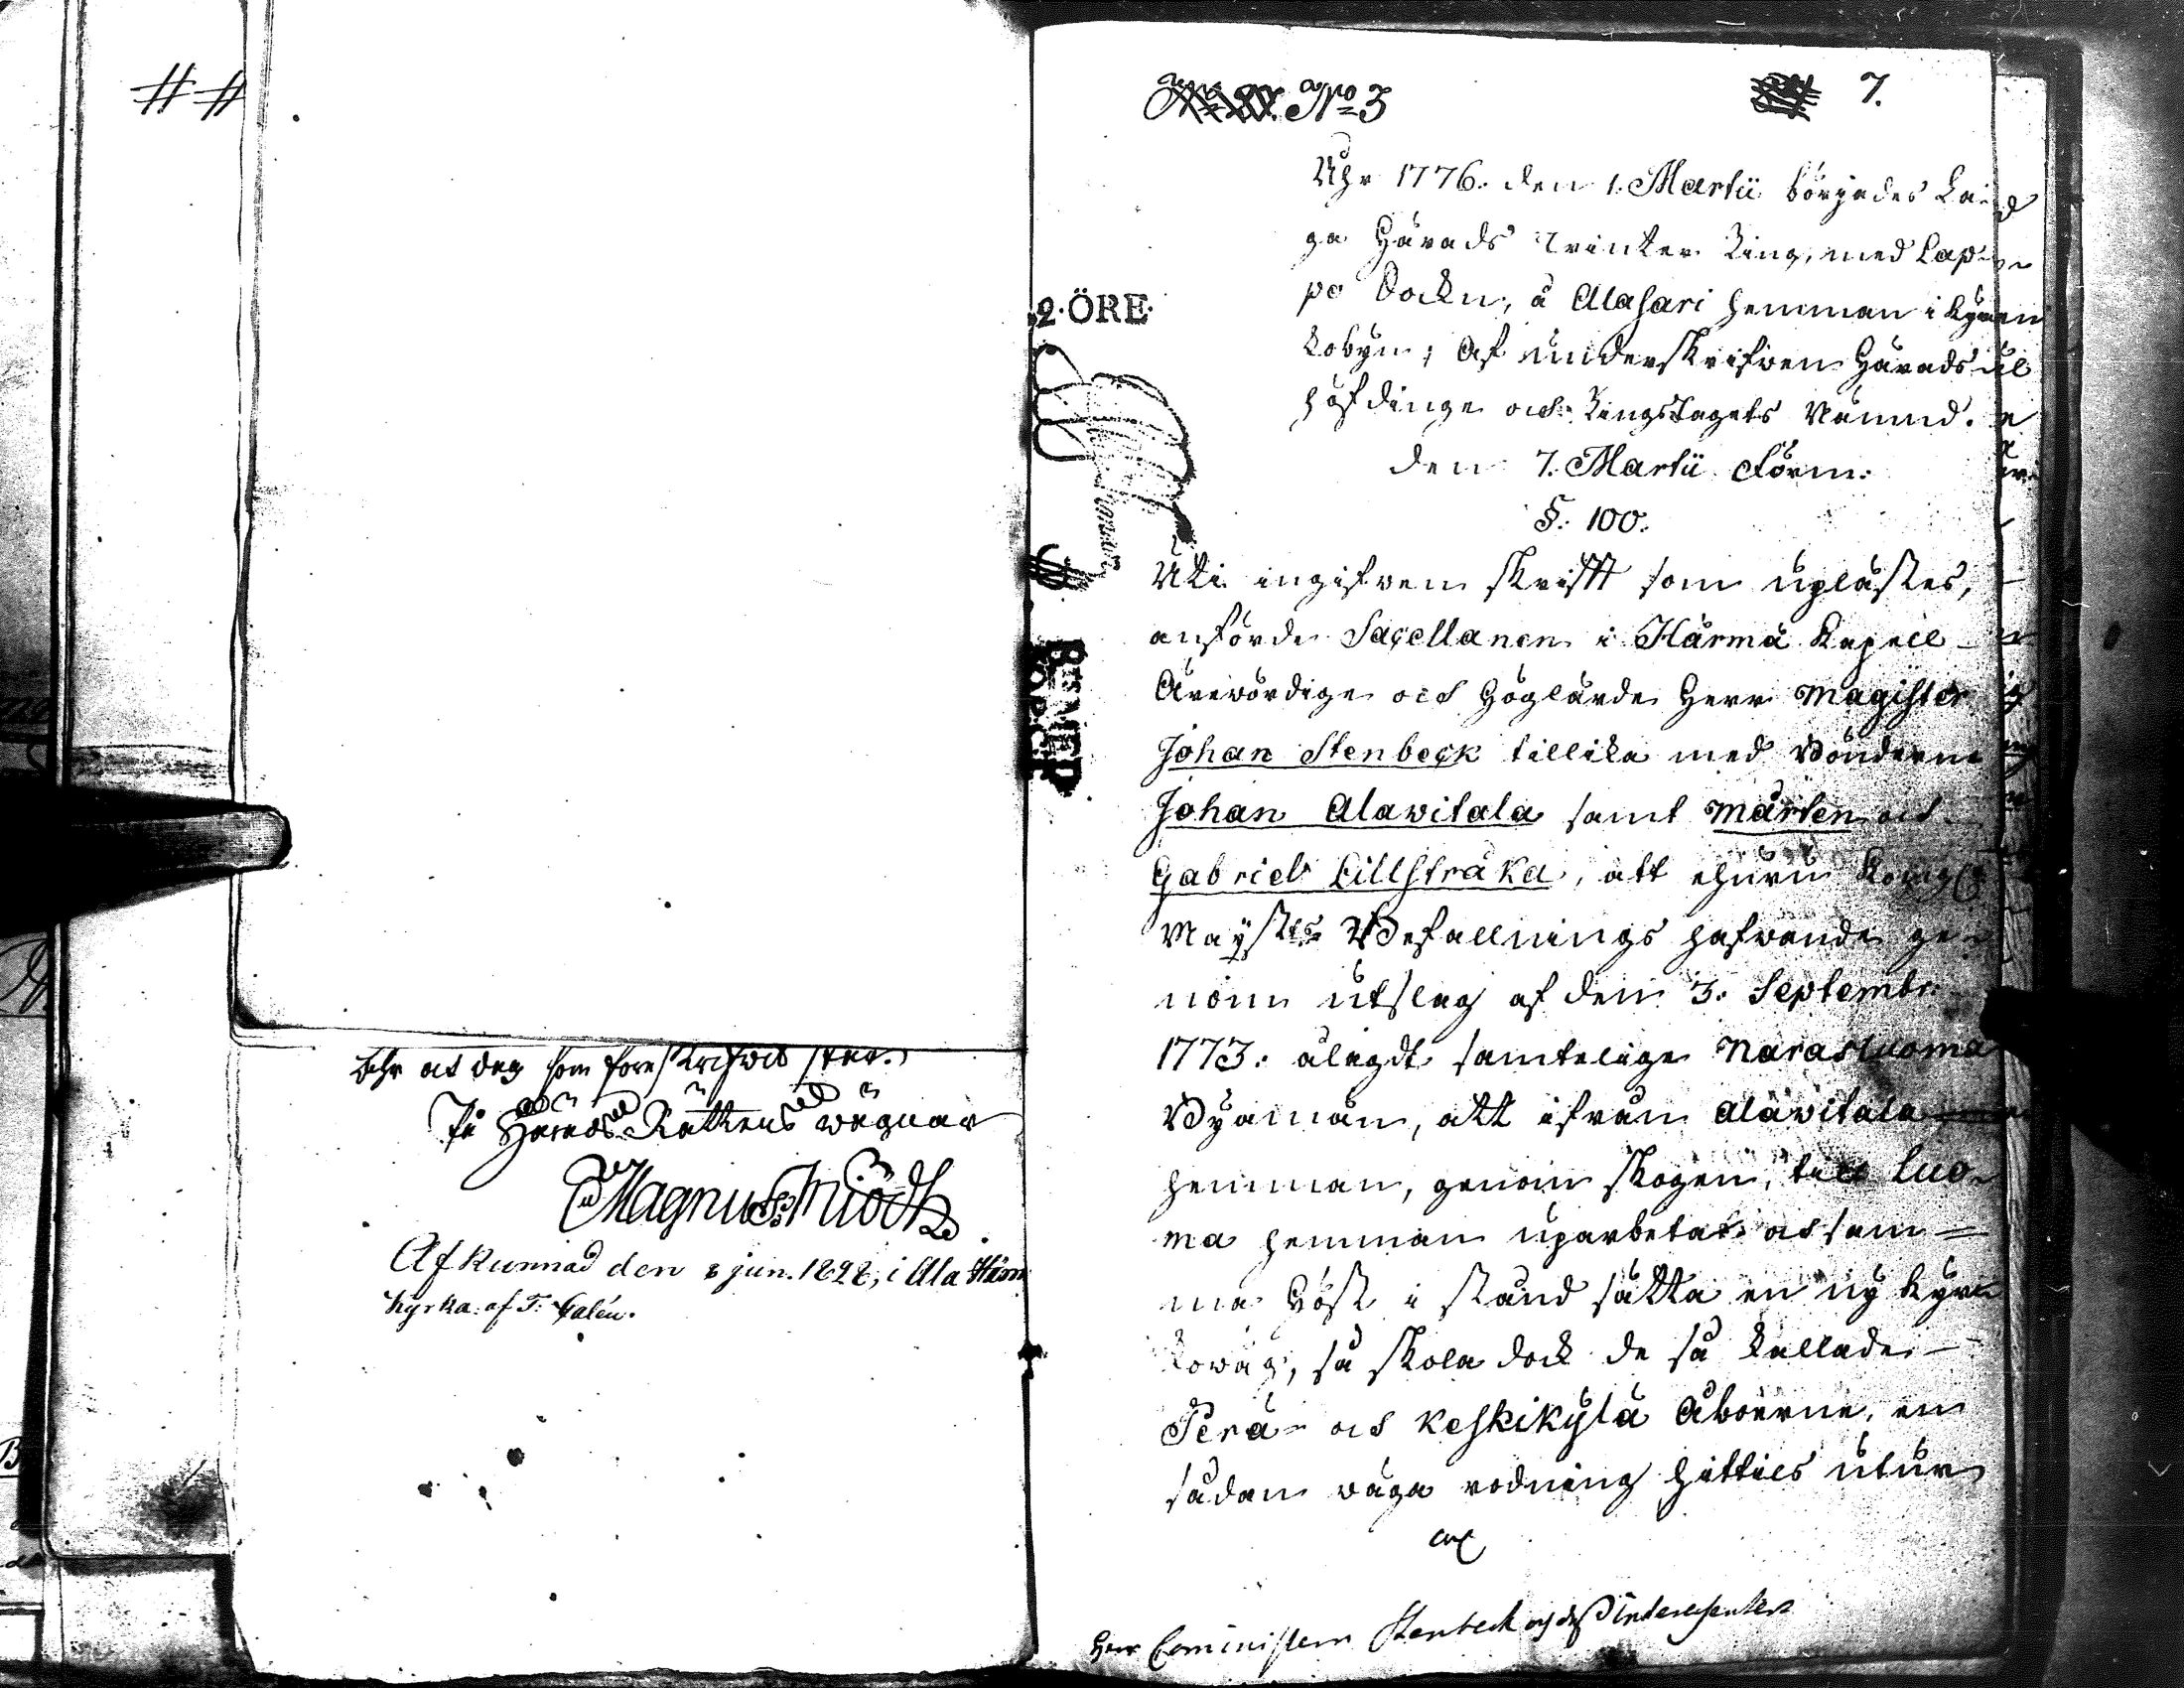 behr at deg som föreskrifwes står.
På Härads Rättens wägnar
Magnus
Afkunnad den 8 jun. 1828, i Ala Härm
kyrka. af F: Calén.
No 3 7.
Åhr 1776. den 1. Martii börjades Laid
ga Härads Winter Ting, med Lap-
po Sockn, å Alasari hemman i Kyren
kobyn; Af underskrifwen Härads
höfdinge och Tingslagets Nämnd.
den 7. Martii Förm:
§. 100.
2. ÖRE.
Uti ingifwen skrifft som uplästes,
anförde Saçellanen i Härmä Kapell
Ärewördige och Höglärde Herr Magister
Johan Stenbeçk tillika med Bönderne
Johan Alawitala samt Mårten och
Gabriel Lillstråka, att ehuru Kongl.
Mayst:ts Befallningshafwande ge-
nom utslag af den 3. Septembr.
1773. ålagdt samtelige Narasluoma
Byamän, att ifrån Alawitala
hemman, genom skogen, till Luo-
ma hemman uparbeta och sam-
ma Höst i stånd sätta en ny Kyr-
kowäg, så skola dock de så kallade
Perä- och Keskikylä Åboerne, en
sådan wäga rodning hittils utur
Herr Cominister Stenbeck och dess Interessenter